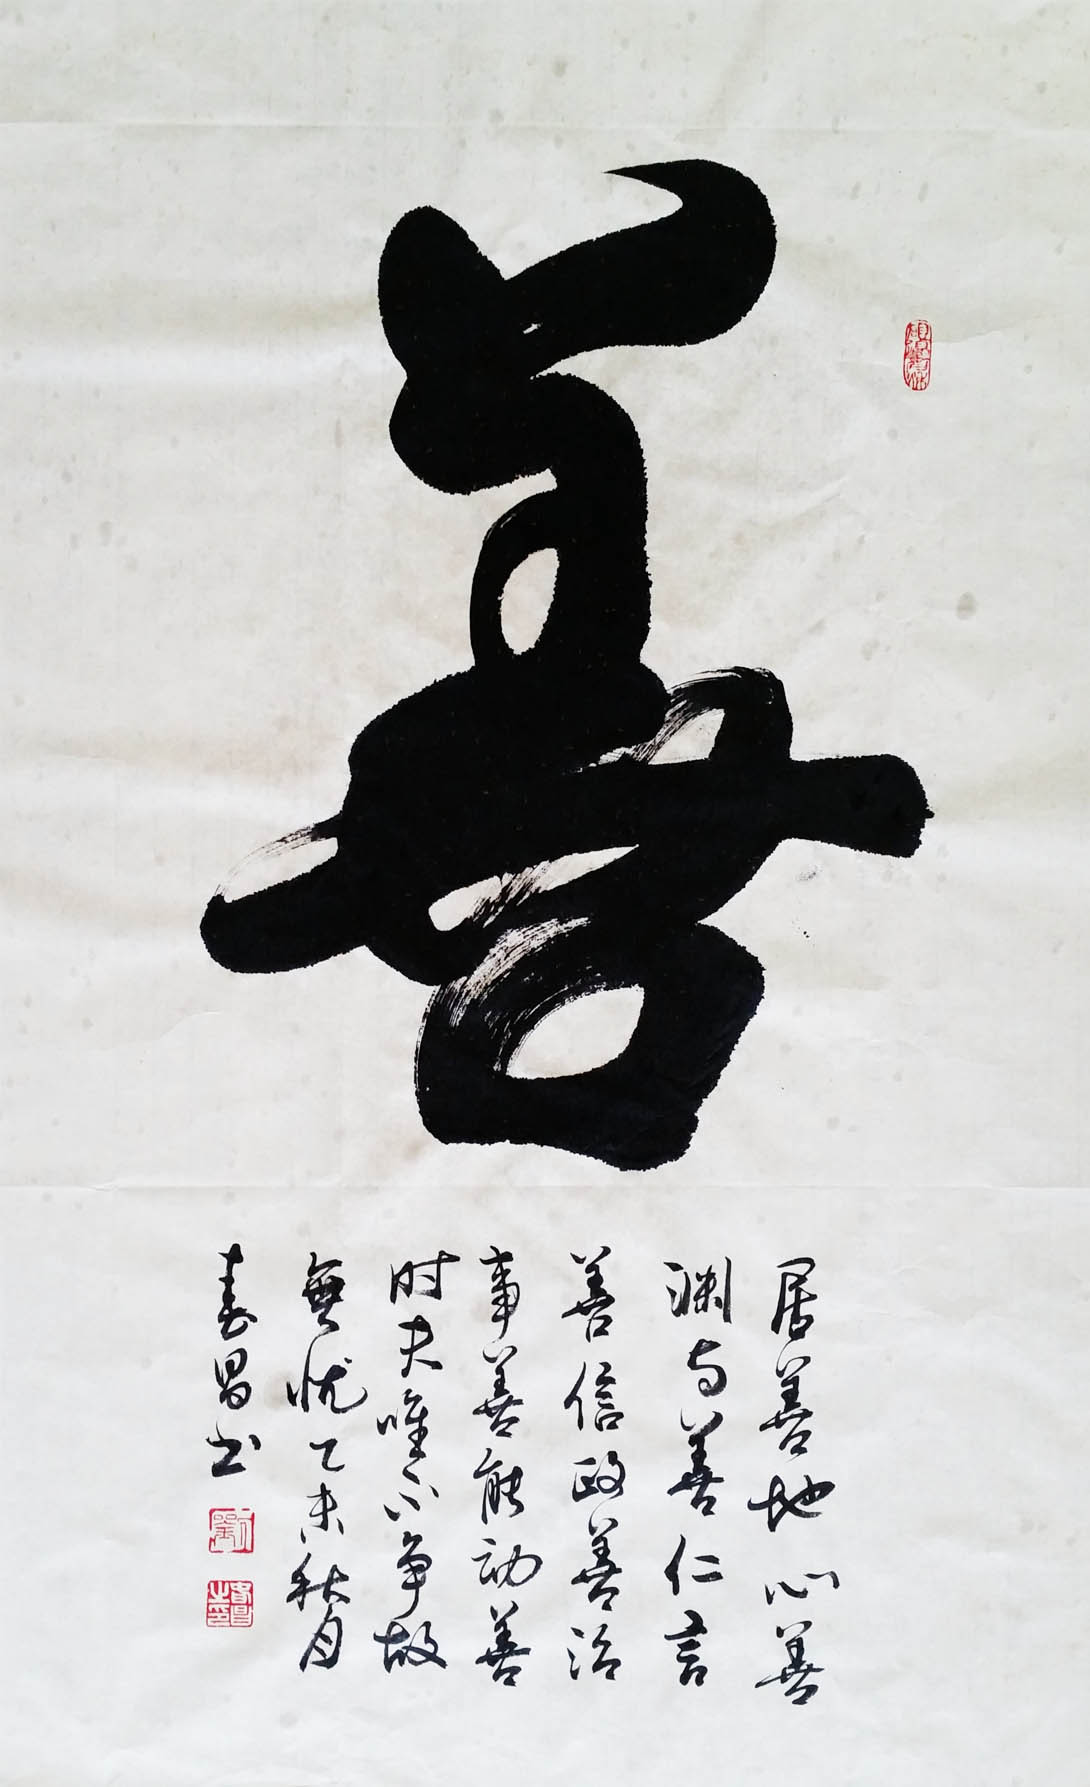 善
居善地心善
渊与善仁言
善信政善治
事善能动善
时夫唯不争故
無忧乙未秋月
春昌书